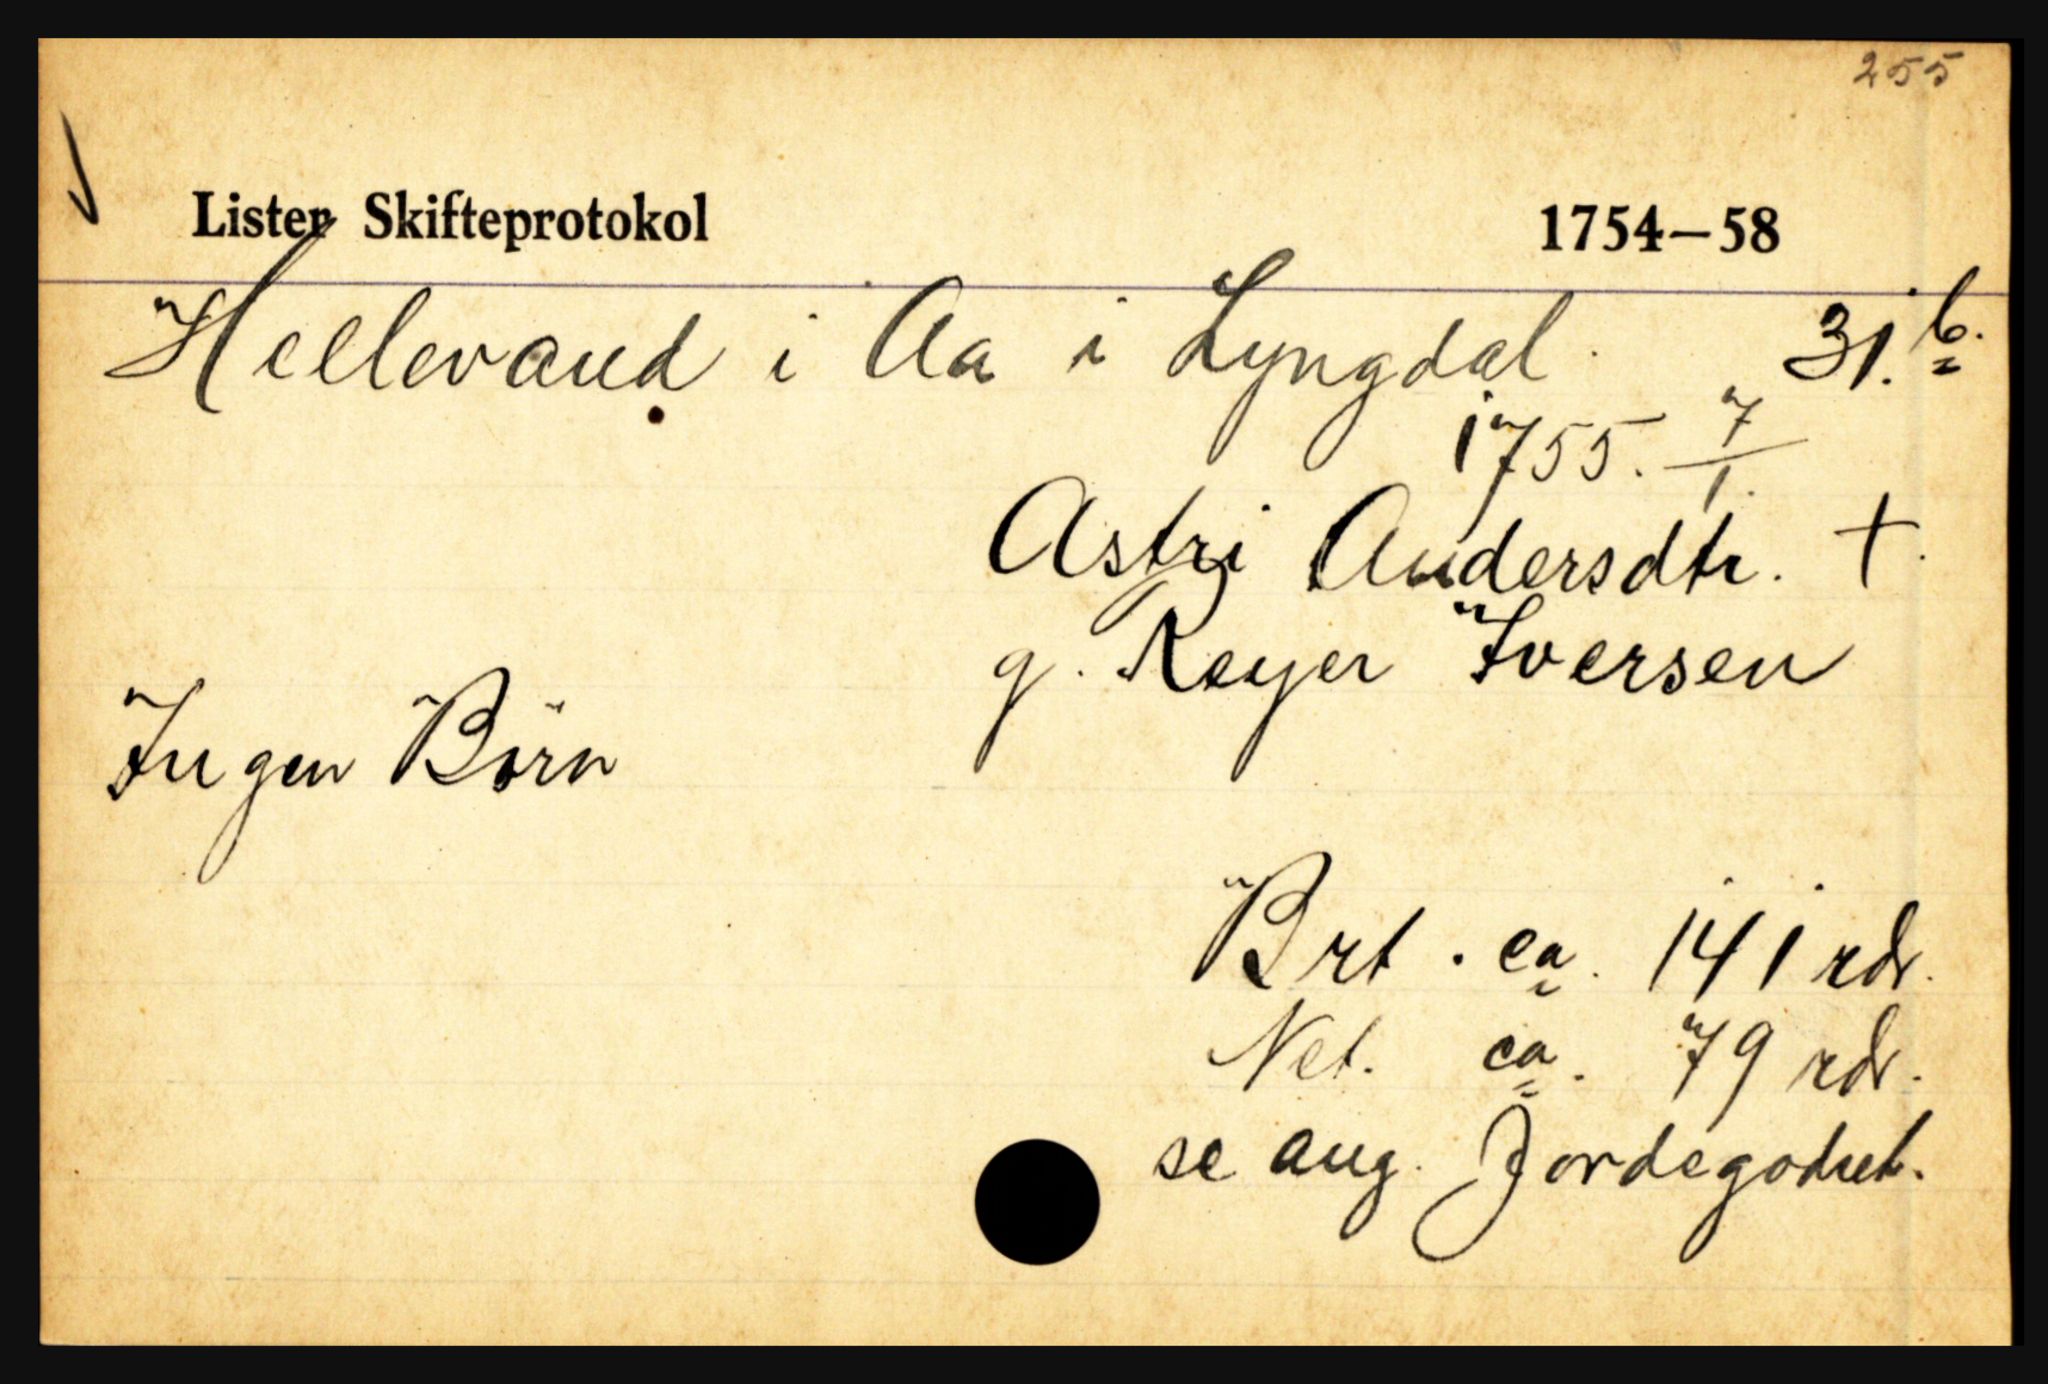 255
Lister Skifteprotokol 1754–58
Hellevand i Aa i Lyngdal. 31. b.
1755. 7/1.
Astri Andersdtr. †.
g. Reyer Iversen
Ingen Börn
Brt. ca. 141 rdr.
Net. ca. 79 rdr.
se ang. Jordegodset.